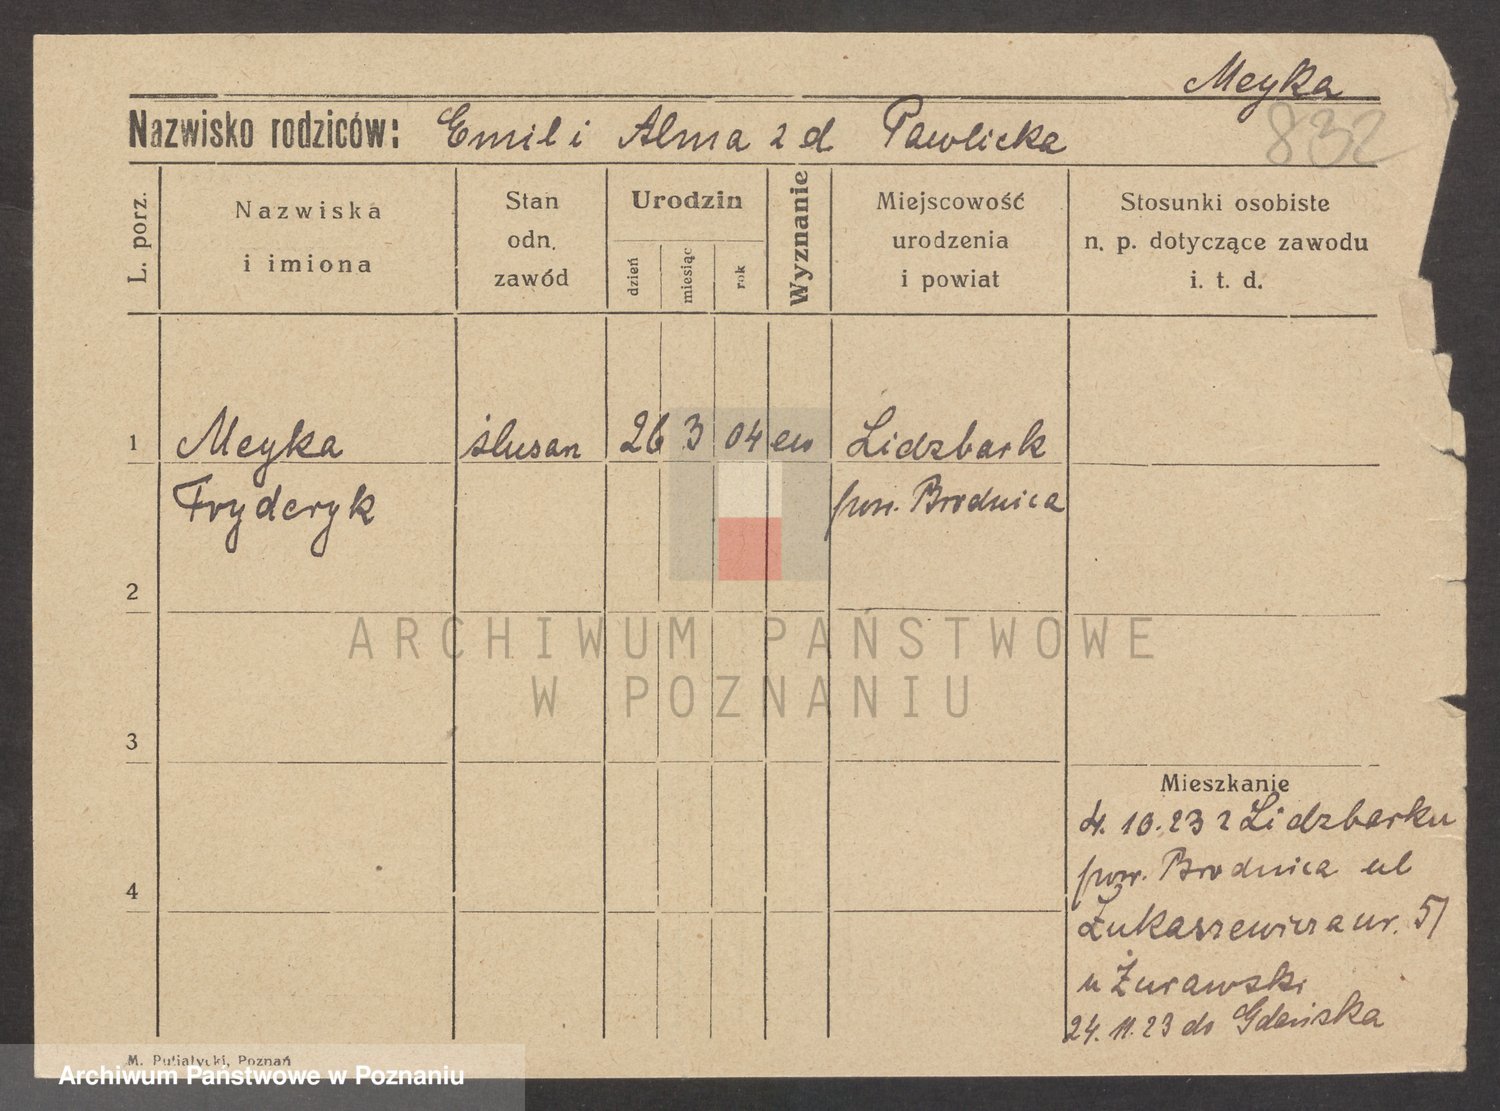 Meyka
832
Nazwisko rodziców: Emil i Alma z d. Pawlicka
L. porz.
Nazwiska
i imiona
Stan
odn.
zawód
Urodzin
dzień
miesiąc
rok
Wyznanie
Miejscowość
urodzenia
i powiat
Stosunki osobiste
n. p. dotyczące zawodu
i. t. d.
1 Meyka ślusarz 26 3 04 ew Lidzbark
Fryderyk pow. Brodnica
2
ARCHIWUM PAŃSTWOWE
W POZNANIU
3
Mieszkanie
4. 10. 23 z Lidzbarku
pow. Brodnica ul
4
Łukaszewicza nr. 51
u Żurawski
24. 11. 23 do Gdańska
M. Putiatycki, Poznań
Archiwum Państwowe w Poznaniu